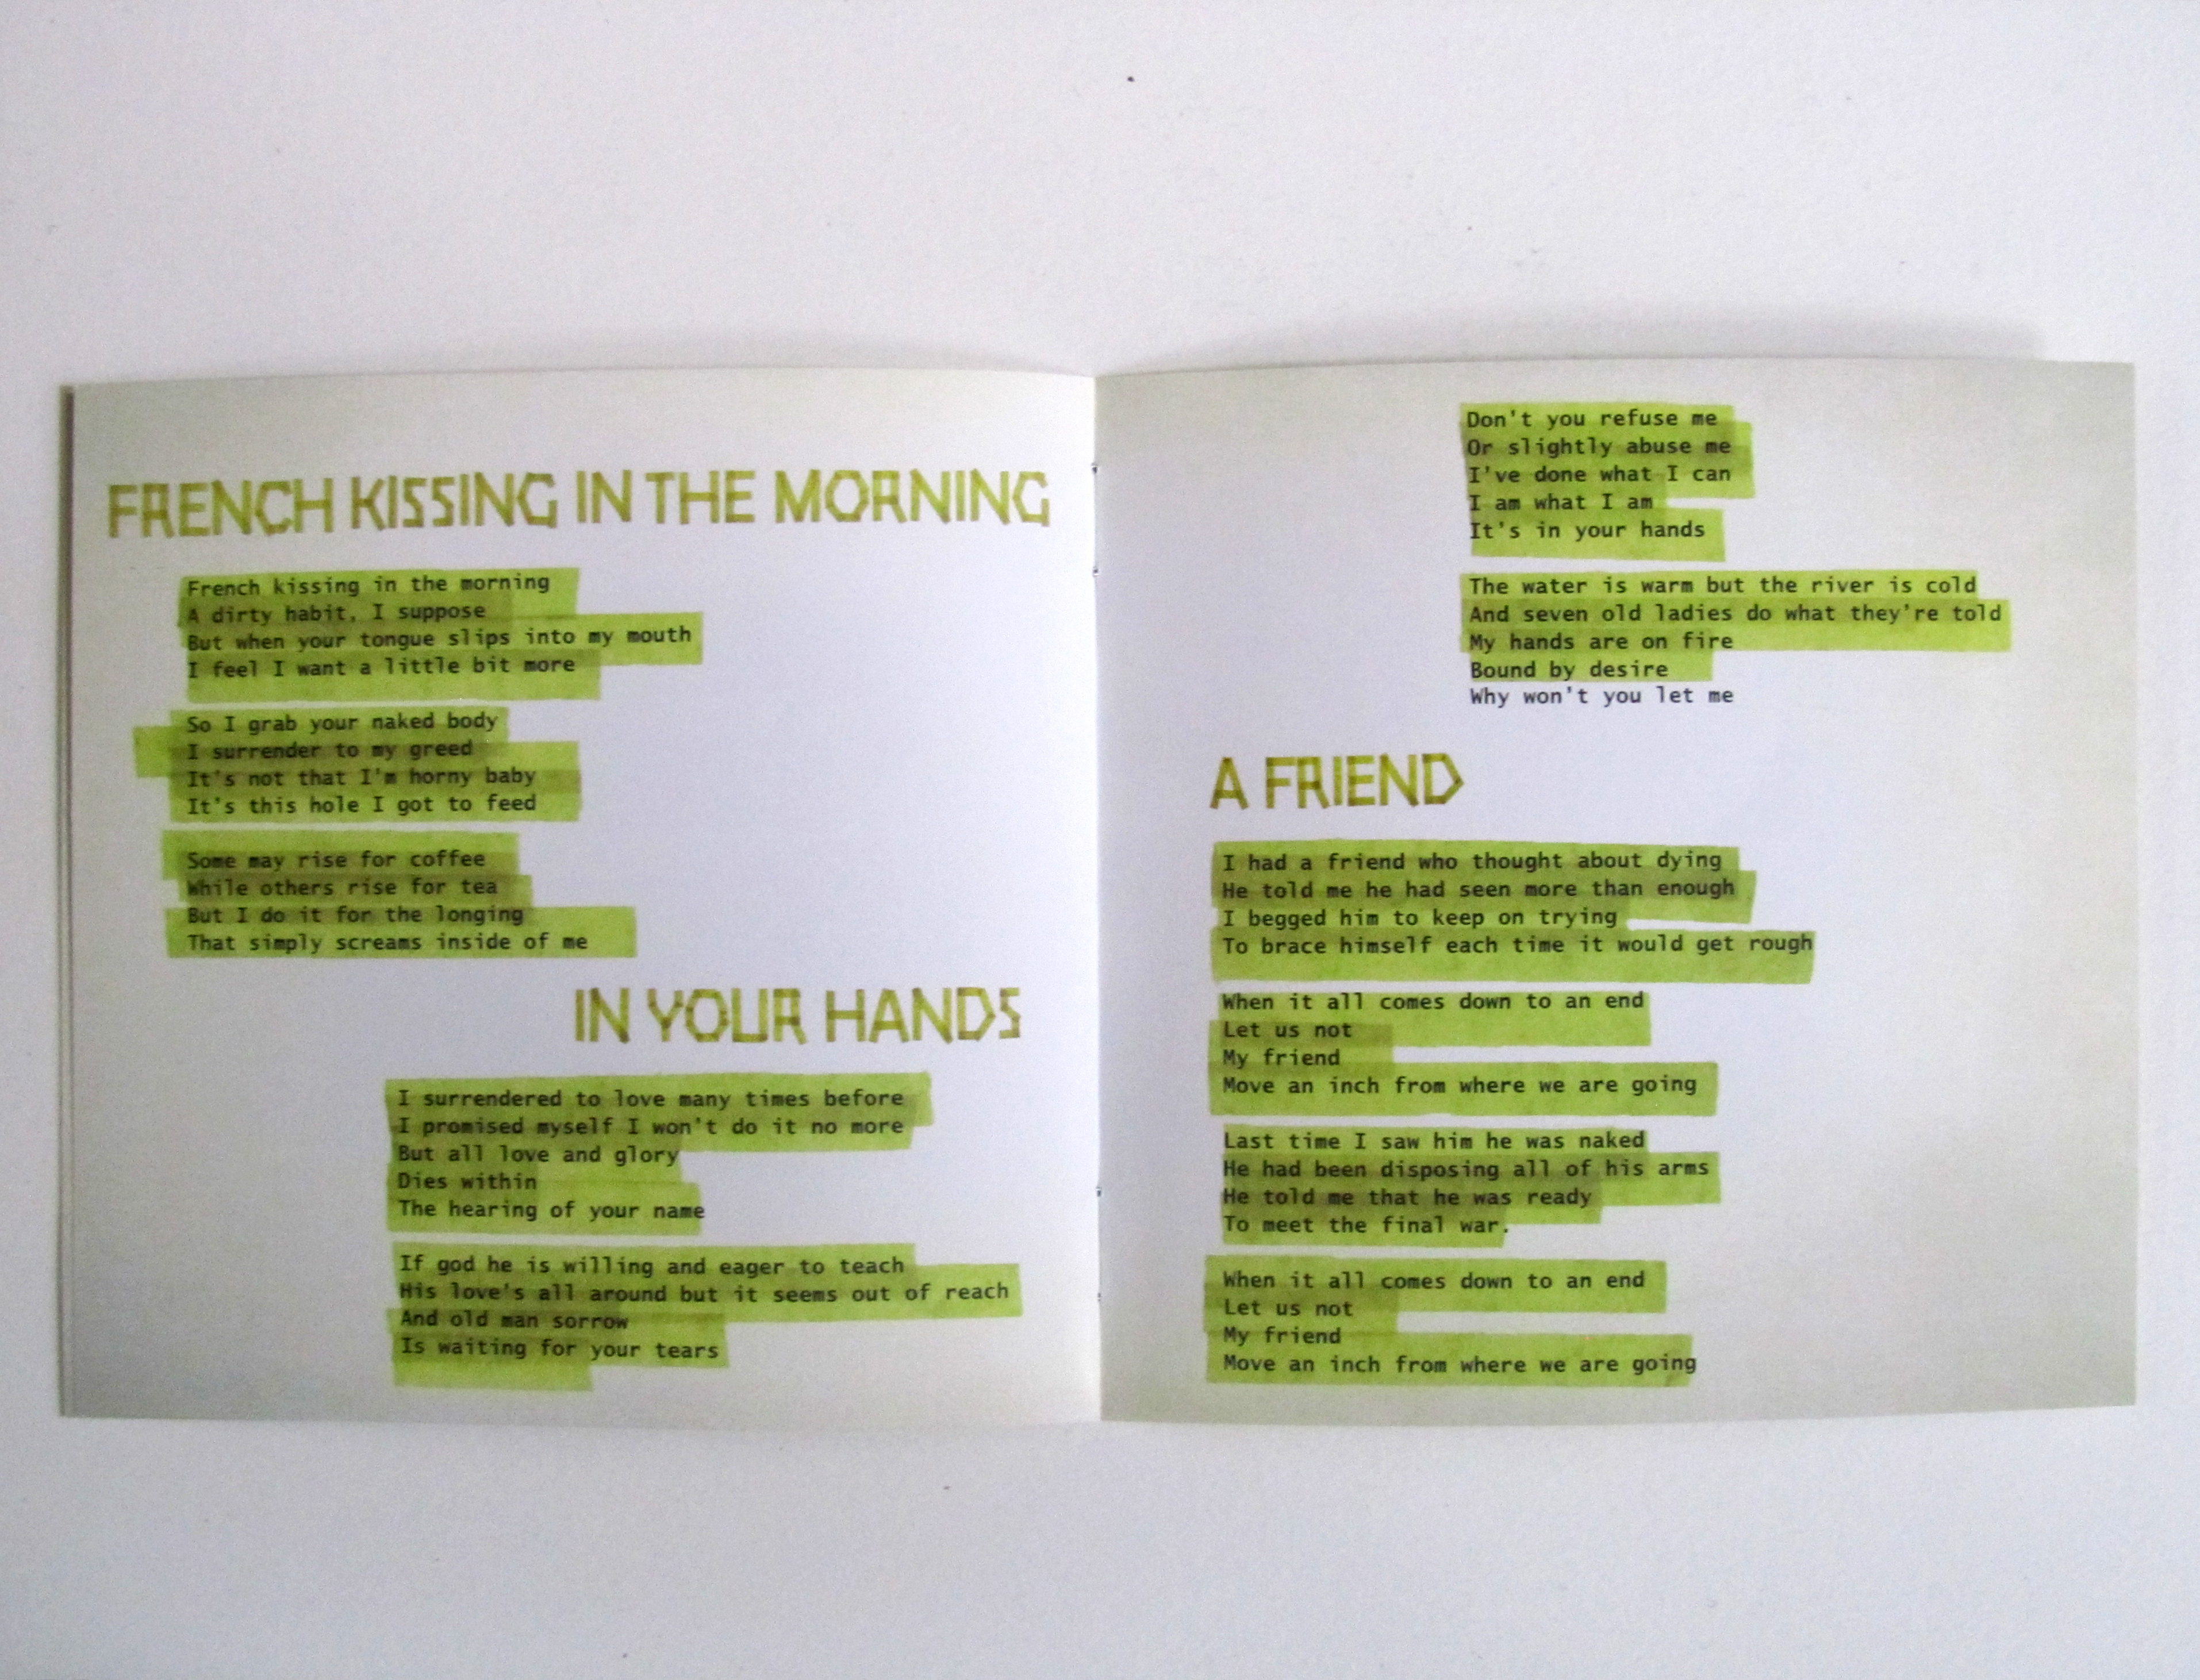 FRENCH KISSING IN THE MORNING
French kissing in the morning
A dirty habit, I suppose
But when your tongue slips into my mouth
I feel I want a little bit more
So I grab your naked body
I surrender to my greed
It's not that I'm horny baby
It's this hole I got to feed
Some may rise for coffee
While others rise for tea
But I do it for the longing
That simply screams inside of me
IN YOUR HANDS
I surrendered to love many times before
I promised myself I won't do it no more
But all love and glory
Dies within
The hearing of your name
If god he is willing and eager to teach
His love's all around but it seems out of reach
And old man sorrow
Is waiting for your tears
Don't you refuse me
Or slightly abuse me
I've done what I can
I am what I am
It's in your hands
The water is warm but the river is cold
And seven old ladies do what they're told
My hands are on fire
Bound by desire
Why won't you let me
A FRIEND
I had a friend who thought about dying
He told me he had seen more than enough
I begged him to keep on trying
To brace himself each time it would get rough
When it all comes down to an end
Let us not
My friend
Move an inch from where we are going
Last time I saw him he was naked
He had been disposing all of his arms
He told me that he was ready
To meet the final war.
When it all comes down to an end
Let us not
My friend
Move an inch from where we are going